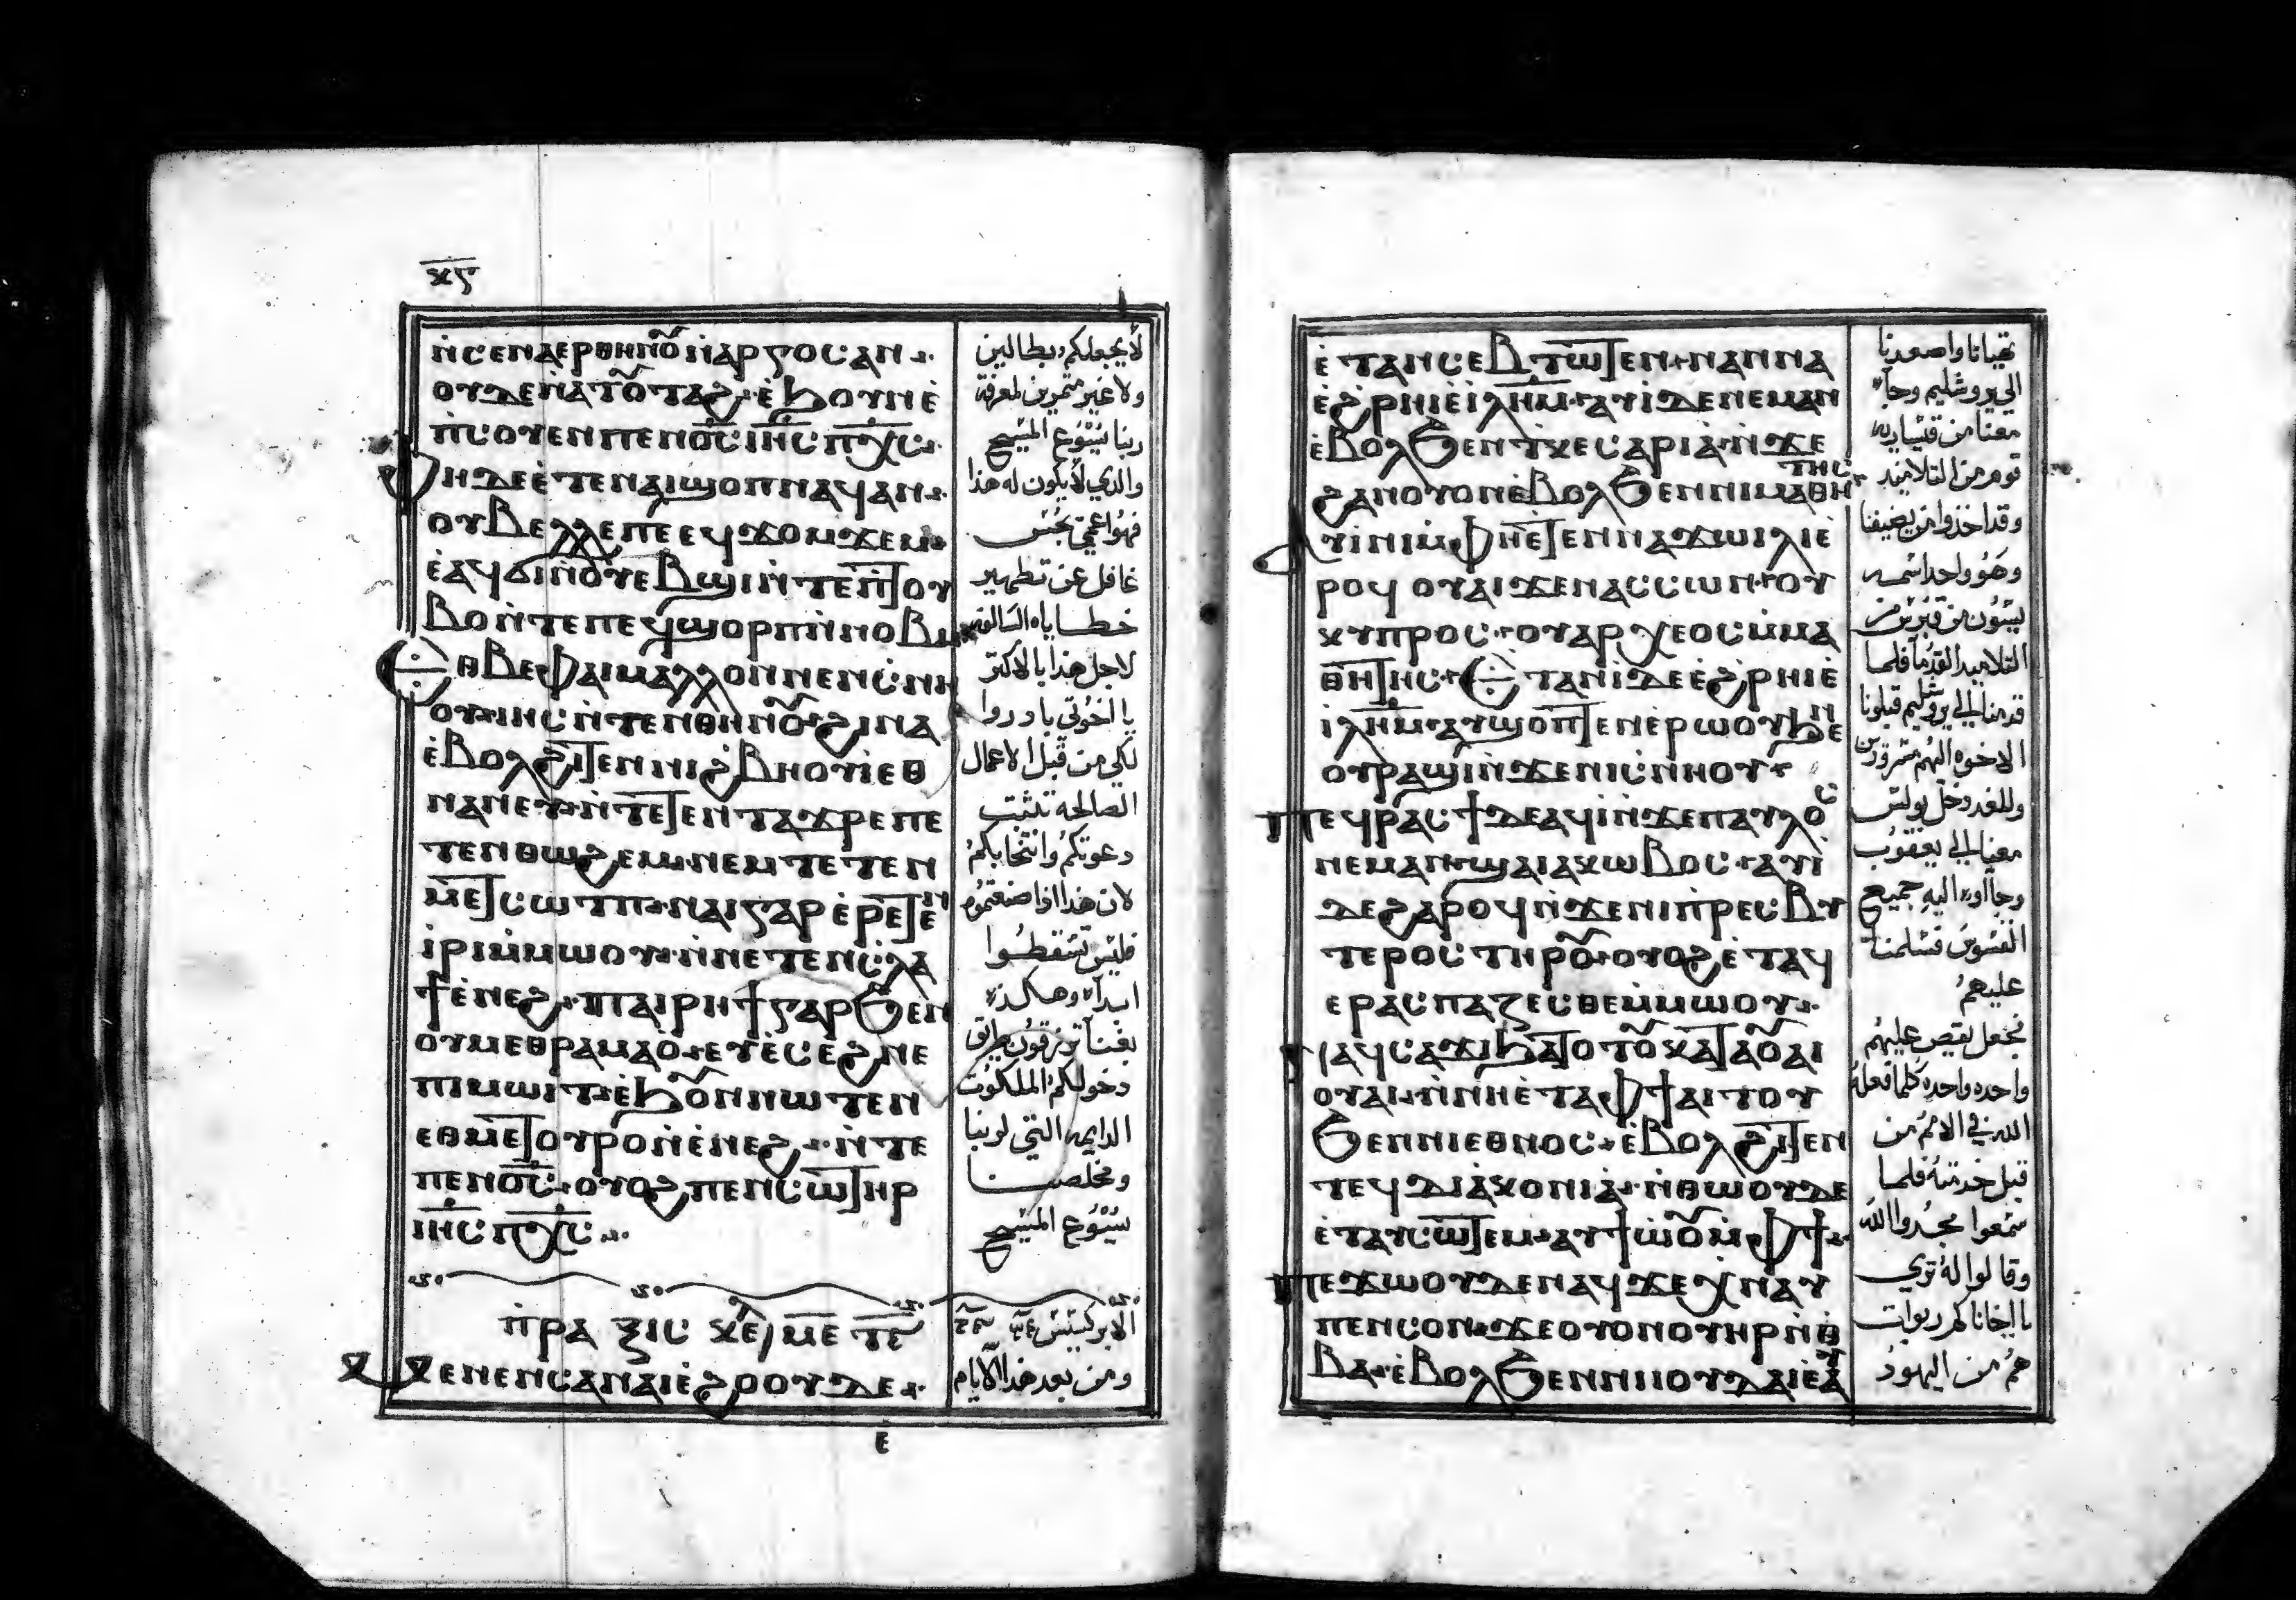 ⲕⲋ
ⲛ̀ⲥⲉⲛⲁⲉⲣⲑⲏⲛⲟ̃ ⲛ̀ⲁⲣⲅⲟⲥⲁⲛ
ⲟⲩⲇⲉⲛ̀ⲁⲧⲟ̃ⲧⲁϩ ⲉ̀ϧⲟⲩⲛⲉ̀
ⲡⲥⲟⲩⲉⲛⲡⲉⲛⲟ̅ⲥ̅ ⲓⲏ̅ⲥ̅ ⲡⲭ̅ⲥ̅
ⲫⲏⲇⲉⲉ̀ⲧⲉⲛⲁⲓϣⲟⲡⲛⲁϥⲁⲛ
ⲟⲩⲃⲉⲗⲗⲉⲡⲉⲉϥϫⲟⲙϫⲉⲙ
ⲉ̀ⲁϥϭⲓⲛ̀ⲟⲩⲉⲃϣⲓⲛ̀ⲧⲉⲡⲧⲟⲩ
ⲃⲟⲛ̀ⲧⲉⲡⲉϥϣⲟⲣⲡⲛ̀ⲛⲟⲃⲓ
ⲉⲑⲃⲉⲫⲁⲓⲙⲁⲗⲗⲟⲛⲛⲉⲛⲥ̀ⲛⲏ
ⲟⲩ ⲓⲏⲥⲛ̀ⲧⲉⲛⲑⲏⲛⲟ̃ ϩⲓⲛⲁ
ⲉ̀ⲃⲟⲗϩⲓⲧⲉⲛⲛⲓϩⲃⲏⲟⲩⲓⲉⲑ
ⲛⲁⲛⲉⲩ ⲛ̀ⲧⲉⲧⲉⲛⲧⲁϫⲣⲉⲡⲉ
ⲧⲉⲛⲑⲱϩⲉⲙ ⲛⲉⲙⲧⲉⲧⲉⲛ
ⲙⲉⲧⲥⲱⲧⲡ ⲛⲁⲓⲅⲁⲣⲉ̀ⲣⲉⲧⲉⲛ
ⲓ̀ⲣⲓⲙ̀ⲙⲱⲟⲩ ⲛ̀ⲛⲉⲧⲉⲛⲥ̀ⲗⲁ
ϯⲉ̀ⲛⲉϩ ⲡⲁⲓⲣⲏϯⲅⲁⲣϧⲉⲛ
ⲟⲩⲙⲉⲑⲣⲁⲙⲁⲟ̀ ⲉⲩⲉ̀ⲥⲉϩⲛⲉ
ⲡⲓⲙⲱⲓⲧⲉ̀ϧⲟ̃ⲛⲛⲱⲧⲉⲛ
ⲉⲑⲙⲉⲧⲟⲩⲣⲟⲛ̀ⲉ̀ⲛⲉϩ ⲛ̀ⲧⲉ
ⲡⲉⲛⲟ̅ⲥ̅ ⲟⲩⲟϩⲡⲉⲛⲥⲱⲧⲏⲣ
ⲓⲏ̅ⲥ̅ ⲡⲭ̅ⲥ̅
ⲡ̀ⲣⲁ ⲝⲓⲥ
ⲙⲉⲛⲉⲛⲥⲁⲛⲁⲓⲉ̀ϩⲟⲟⲩⲇⲉ
ⲉ̀
لا يجعلكم بطالين
ولا غير مثمرين لمعرفة
ربنا يسوع المسيح
والذي لا يكون له هذا
فهو اعمي يجس
غافل عن تطهير
خطاياه السالفه
لاجل هذا بالاكثر
يا اخوتي بادروا
لكي من قبل الاعمال
الصالحه تثبت
دعوتكم وانتخابكم
لان هذا اذا صنعتموه
فليس تسقطوا
ابدآ وهكذا
بغنآ ترزقون طريق
دخولكم الملكوت
الدايمه التي لربنا
ومخلصنا
يسوع المسيح
الابركسيس
ومن بعد هذا الايام
ⲉ̀ⲧⲁⲛⲥⲉⲃⲧⲱⲧⲉⲛ ⲛⲁⲛⲛⲁ
ⲉ̀ϩⲣⲏⲓⲉ̀ⲓ̀ⲗⲏ̅ⲙ̅ ⲁⲩⲓ̀ⲇⲉⲛⲉⲙⲁⲛ
ⲉ̀ⲃⲟⲗϧⲉⲛⲧⲕⲉⲥⲁⲣⲓⲁ ⲛ̀ϫⲉ
ϩⲁⲛⲟⲩⲟⲛⲉ̀ⲃⲟⲗϧⲉⲛⲛⲓⲙⲁⲑⲏⲧⲏⲥ
ⲁⲩⲓ̀ⲛⲓⲙ̀ⲫⲏⲉ̀ⲧⲉⲛⲛⲁϫⲱⲓⲗⲓⲉ̀
ⲣⲟϥ ⲟⲩⲁⲓϫⲉⲛⲁⲥⲥⲱⲛ ⲟⲩ
ⲕⲩⲡⲣⲟⲥ ⲟⲩⲁⲣⲭⲉⲟⲥⲙ̀ⲙⲁ
ⲑⲏⲧⲏⲥ ⲉⲧⲁⲛⲓ̀ⲇⲉⲉ̀ϩⲣⲏⲓⲉ̀
ⲓ̀ⲗⲏ̅ⲙ̅ ⲁⲩϣⲟⲡⲧⲉⲛⲉ̀ⲣⲱⲟⲩϧⲉⲛ
ⲟⲩⲣⲁϣⲓⲛ̀ϫⲉⲛⲓⲥ̀ⲛⲏⲟⲩ
ⲡⲉϥⲣⲁⲥϯⲇⲉⲁϥⲓ̀ⲛ̀ϫⲉⲡⲁⲩⲗⲟⲥ
ⲛⲉⲙⲁⲛ ϣⲁⲓⲁⲕⲱⲃⲟⲥ ⲁⲩⲓ̀
ⲇⲉϩⲁⲣⲟϥⲛ̀ϫⲉⲛⲓⲡ̀ⲣⲉⲥⲃⲩ
ⲧⲉⲣⲟⲥⲧⲏⲣⲟ̃ ⲟⲩⲟϩⲉ̀ⲧⲁϥ
ⲉⲣⲁⲥⲡⲁⲍⲉⲥⲑⲉⲙ̀ⲙⲱⲟⲩ
ⲛⲁϥⲥⲁϫⲓϧⲁⲧⲟⲧⲟ̃ⲕⲁⲧⲁⲟ̃ⲁⲓ
ⲟⲩⲁⲓ ⲛ̀ⲛⲏⲉ̀ⲧⲁⲫϯⲁⲓⲧⲟⲩ
ϧⲉⲛⲛⲓⲉⲑⲛⲟⲥ ⲉ̀ⲃⲟⲗϩⲓⲧⲉⲛ
ⲧⲉϥⲇⲓⲁⲕⲟⲛⲓⲁ ⲛ̀ⲑⲱⲟⲩⲇⲉ
ⲉ̀ⲧⲁⲩⲥⲱⲧⲉⲙ ⲁⲩϯⲱ̀ⲟ̃ⲙ̀ⲫϯ
ⲡⲉϫⲱⲟⲩⲇⲉⲛⲁϥϫⲉⲭⲛⲁⲩ
ⲡⲉⲛⲥⲟⲛ ϫⲉⲟⲩⲟⲛⲟⲩⲏⲣⲛ̀ⲑ
ⲃⲁ ⲉ̀ⲃⲟⲗϧⲉⲛⲛⲓⲓⲟⲩⲇⲁⲓⲉ̀ⲁⲩ
تهيانا واصعدنا
الي يروشليم وجآ
معنا من قيساريه
قوم من التلاميذ
وقد اخذوا من يضيفنا
وهو واحد اسمه
يسون من قبرس من
التلاميذ القدمآ فلما
قدمنا الي يروشليم قبلونا
الاخوه اليهم مسرورين
وللغد دخل بولس
معنا الي يعقوب
وجآوا اليه جميع
القسوس فسلمنا
عليهم
فجعل يقص عليهم
واحده واحده كلما فعله
الله في الامم من
قبل خدمته فلما
سمعوا مجدوا الله
وقالوا له تري
يا اخانا كم ربوات
هم من اليهود